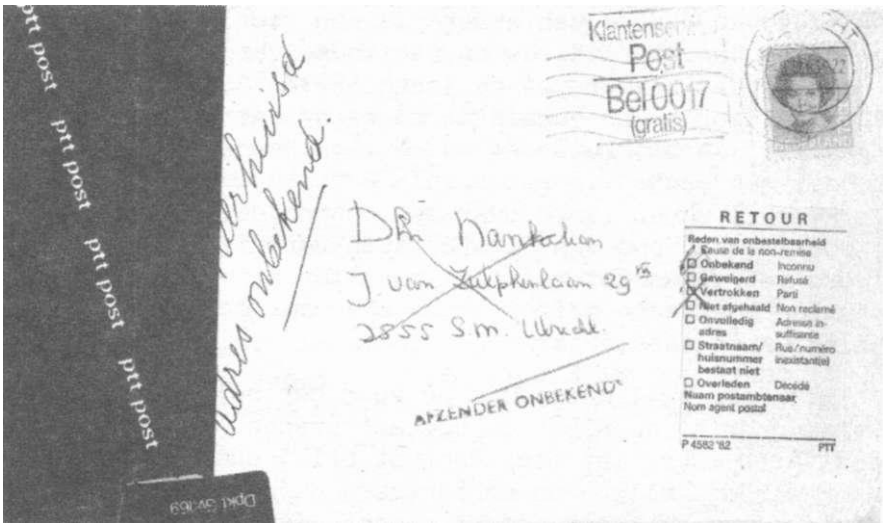 ptt post
ptt post
ptt post
ptt post
ptt post
verhuisd
adres onbekend.
Klantenserv
Post
Bel 0017
(gratis)
DR
J van Zulphenlaan 29
S.m. Utrecht.
AFZENDER ONBEKEND
RETOUR
Reden van onbestelbaarheid
Cause de la non-remise
Onbekend Inconnu
Geweigerd Refusé
Vertrokken Parti
Niet afgehaald Non reclamé
Onvolledig adres Adresse insuffisante
Straatnaam/ huisnummer bestaat niet Rue/numéro inexistant(e)
Overleden Décédé
Naam postambtenaar
Nom agent postal
P 4582 '82 PTT
Dpkt Sv.169